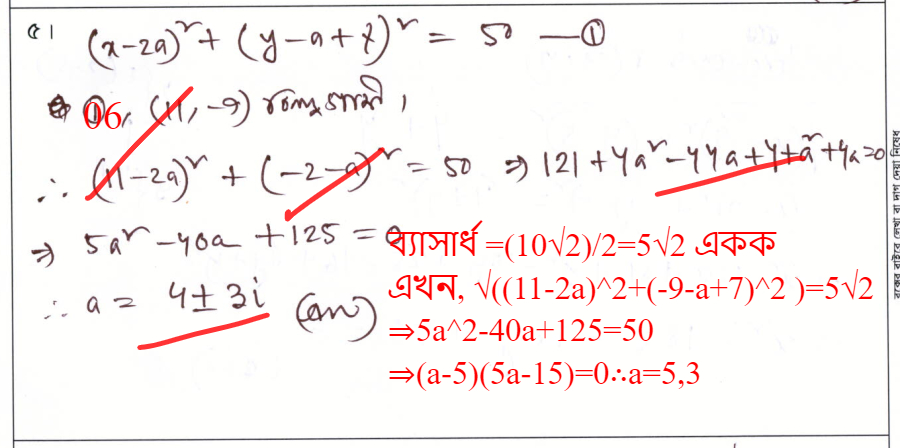 ৫।
(x-2a)² + (y-a+7)² = 50 —①
06
①, (11, -9) বিন্দুগামী,
∴ (11-2a)² + (-2-a)² = 50 ⇒ 121+4a²-44a+4+a²+4a=0
⇒ 5a²-40a+125=0
∴ a = 4±3i (ans)
ব্যাসার্ধ =(10√2)/2=5√2 একক
এখন, √((11-2a)^2+(-9-a+7)^2 )=5√2
⇒5a^2-40a+125=50
⇒(a-5)(5a-15)=0∴a=5,3